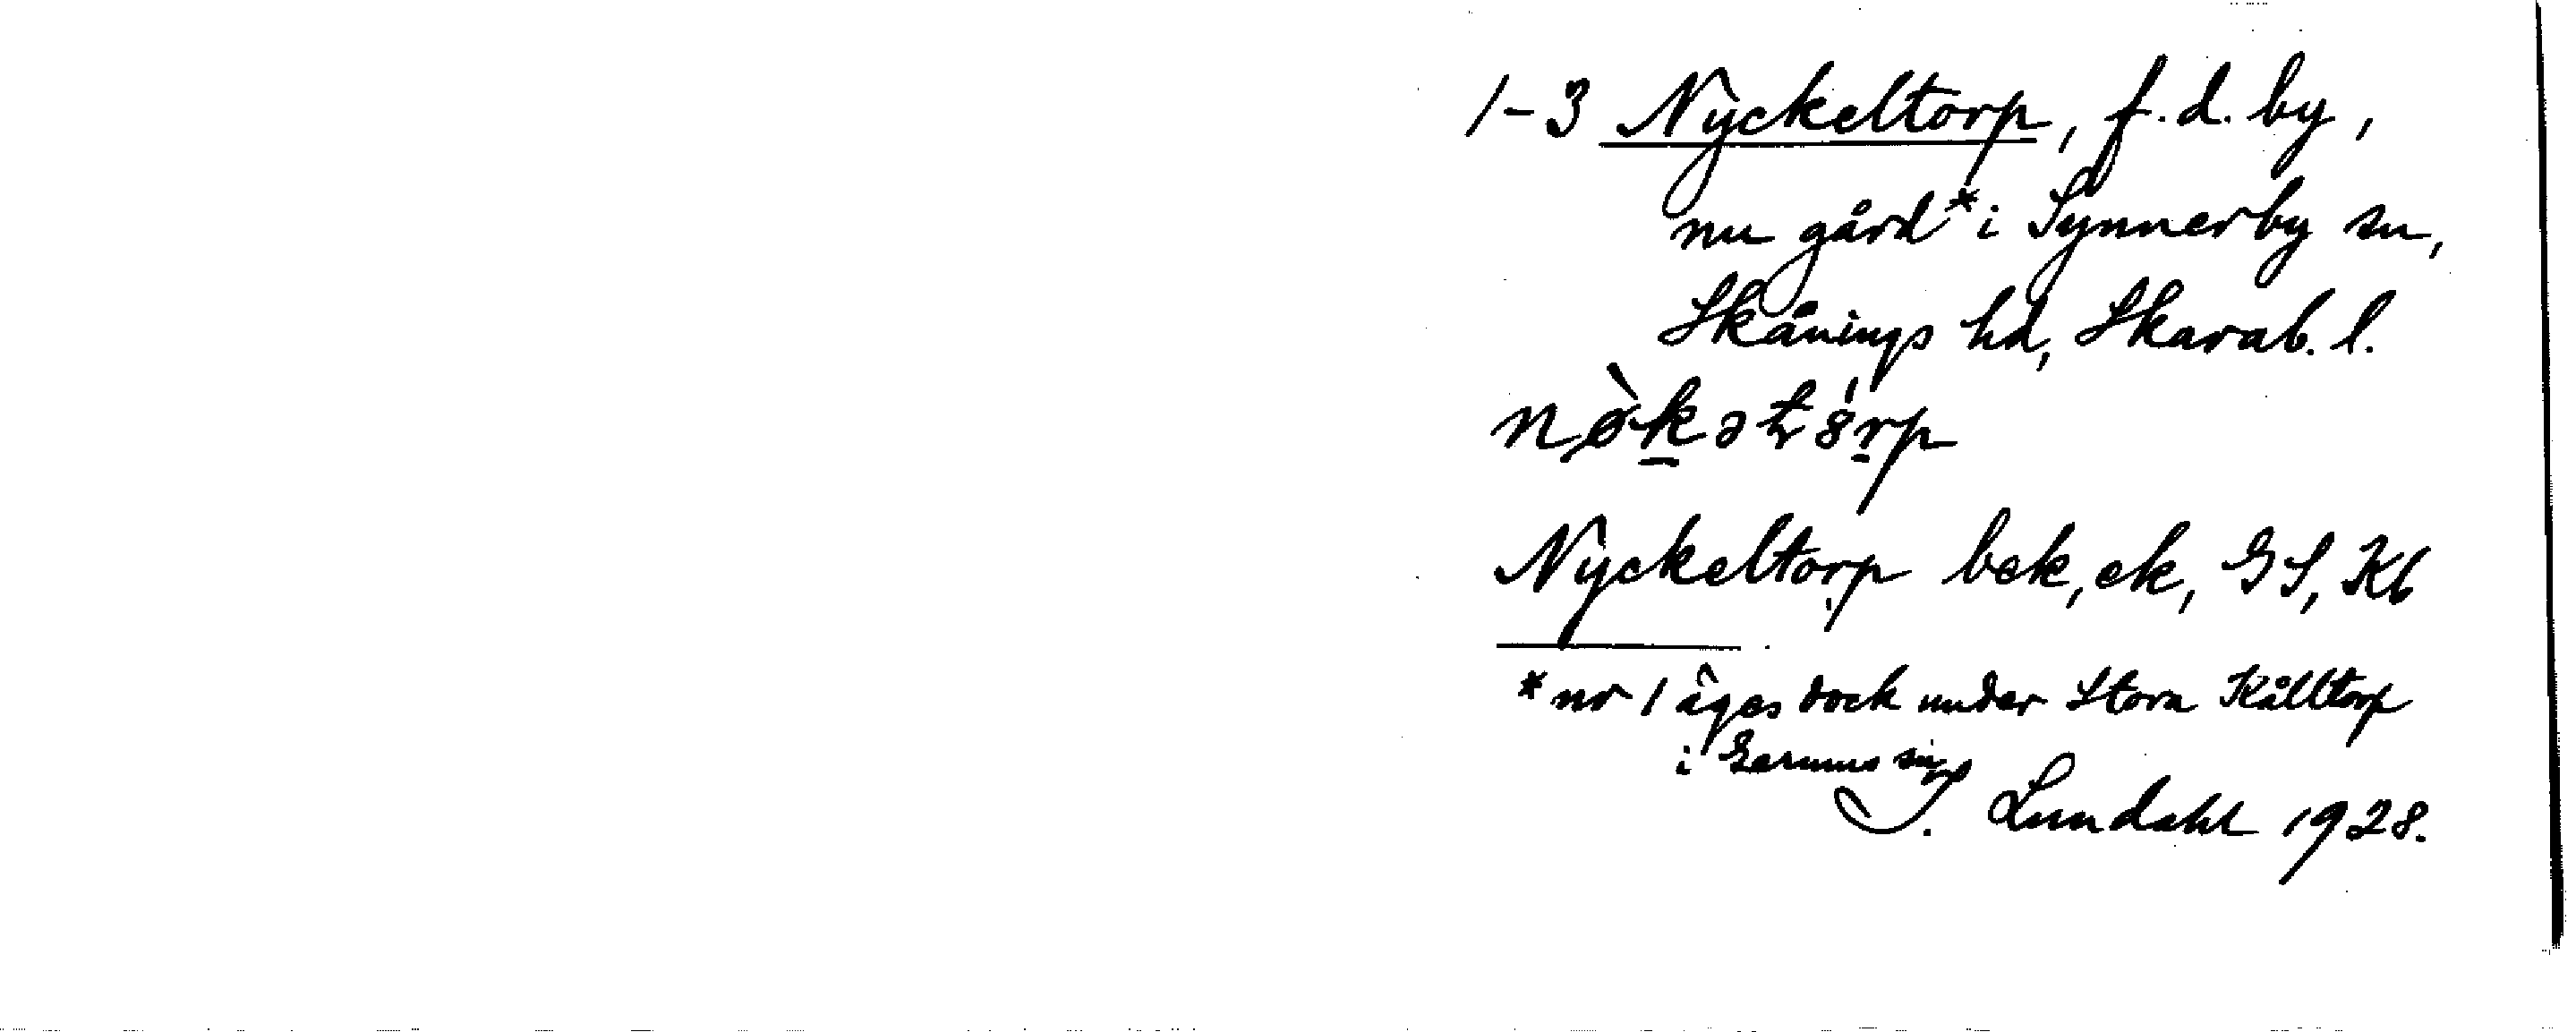 1-3 Nyckeltorp, f.d. by,
nu gård* i Synnerby sn,
Skånings hd, Skarab. l.
nø̀kətó̤rp
Nyckeltorp bek, ek, GS, Kb
* nr 1 äges dock under Stora Kålltorp
i Gerums sn
I. Lundahl 1928.